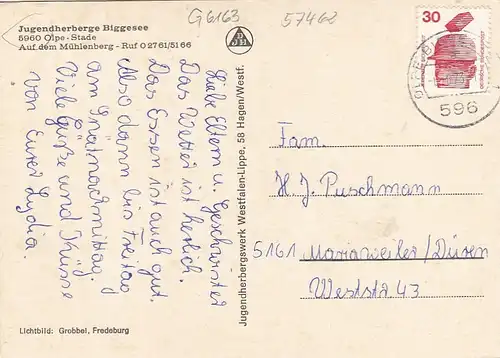 Jugendherberge Biggesee
5960 Olpe-Stade
Auf dem Mühlenberg - Ruf 02761/5166
G6163
57468
Liebe Eltern u. Geschwister
Das Wetter ist herlich.
Das Essen ist auch gut.
Also dann bis Freitag
am Spätnachmittag.
Viele Grüße und Küsse
von Eurer Lydia.
Jugendherbergswerk Westfalen-Lippe, 58 Hagen/Westf.
30
DEUTSCHE BUNDESPOST
596
Fam.
H. J. Puschmann
5161 Mariaweiler/Düren
Weststr 43
Lichtbild: Grobbel, Fredeburg